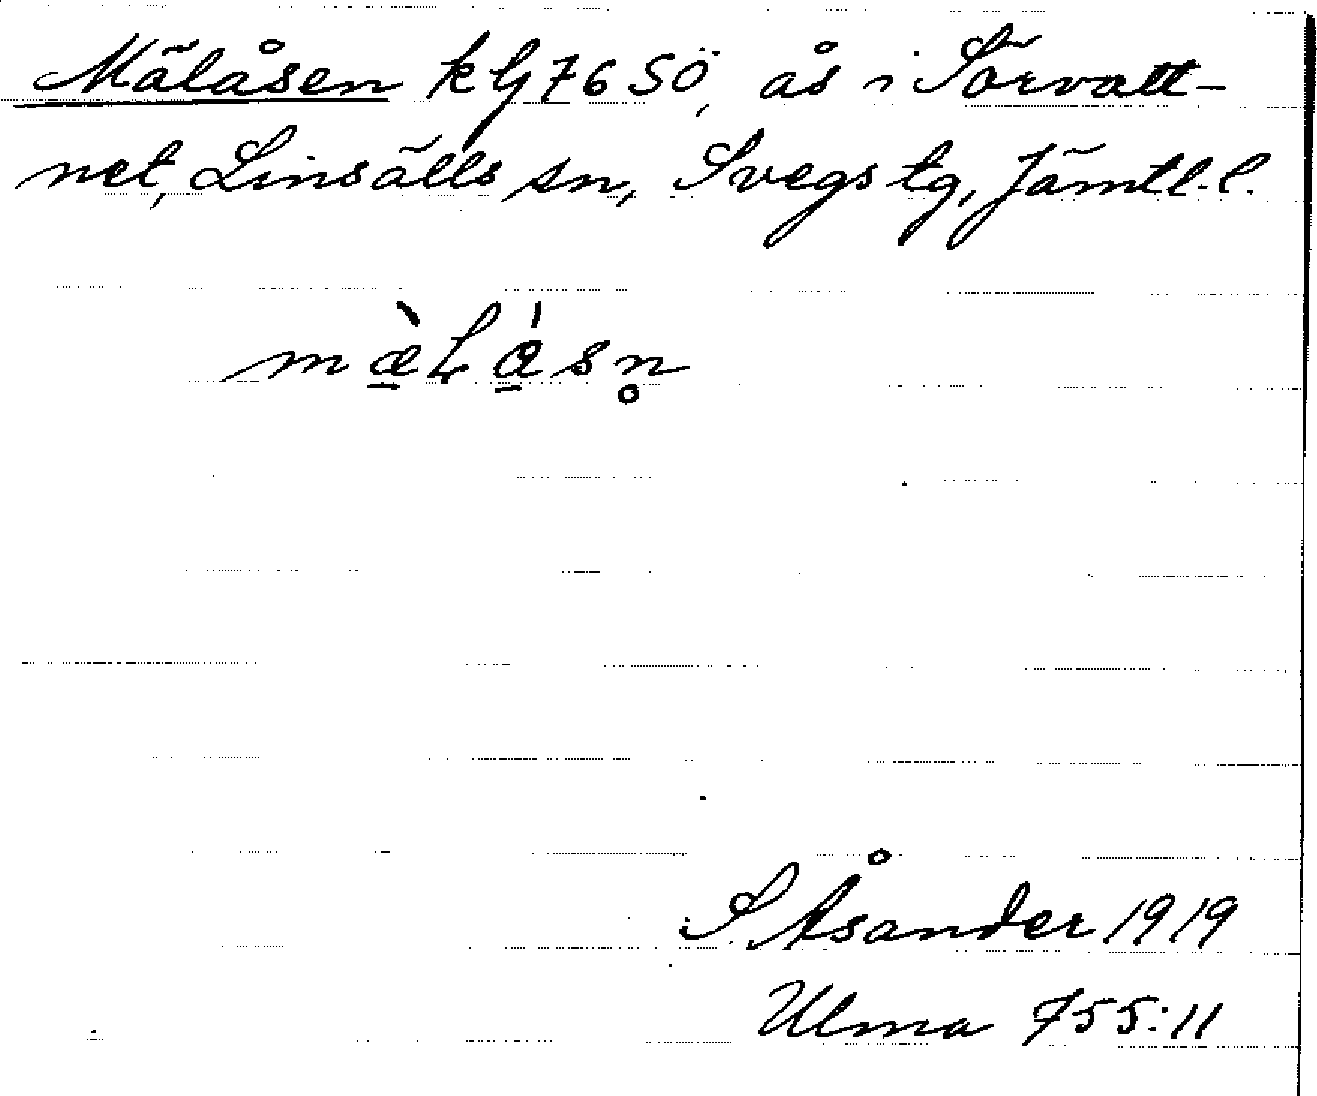 Mälåsen kG76 SÖ, ås i Sörvatt-
net, Linsälls sn, Svegs tg, Jämtl. l.
mæ̀Låsn̥
S. Åsander 1919
Ulma 755:11